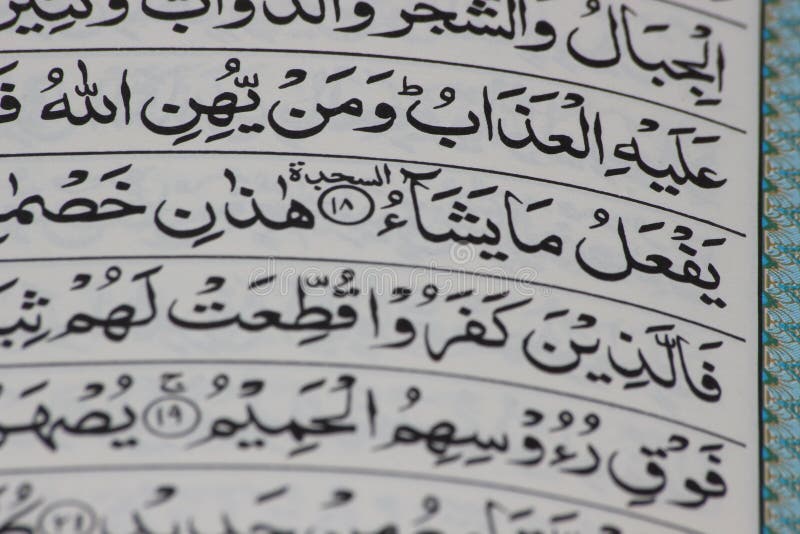 الْجِبَالُ وَالشَّجَرُ وَالدَّوَآبُّ وَكَثِيْرٌ
عَلَيْهِ الْعَذَابُ ؕ وَمَنْ يُّهِنِ اللّٰهُ
يَفْعَلُ مَا يَشَآءُ السجدة ﴿۱۸﴾ هٰذٰنِ
فَالَّذِيْنَ كَفَرُوْا قُطِّعَتْ لَهُمْ
فَوْقِ رُءُوْسِهِمُ الْحَمِيْمُ ۚ ﴿۱۹﴾